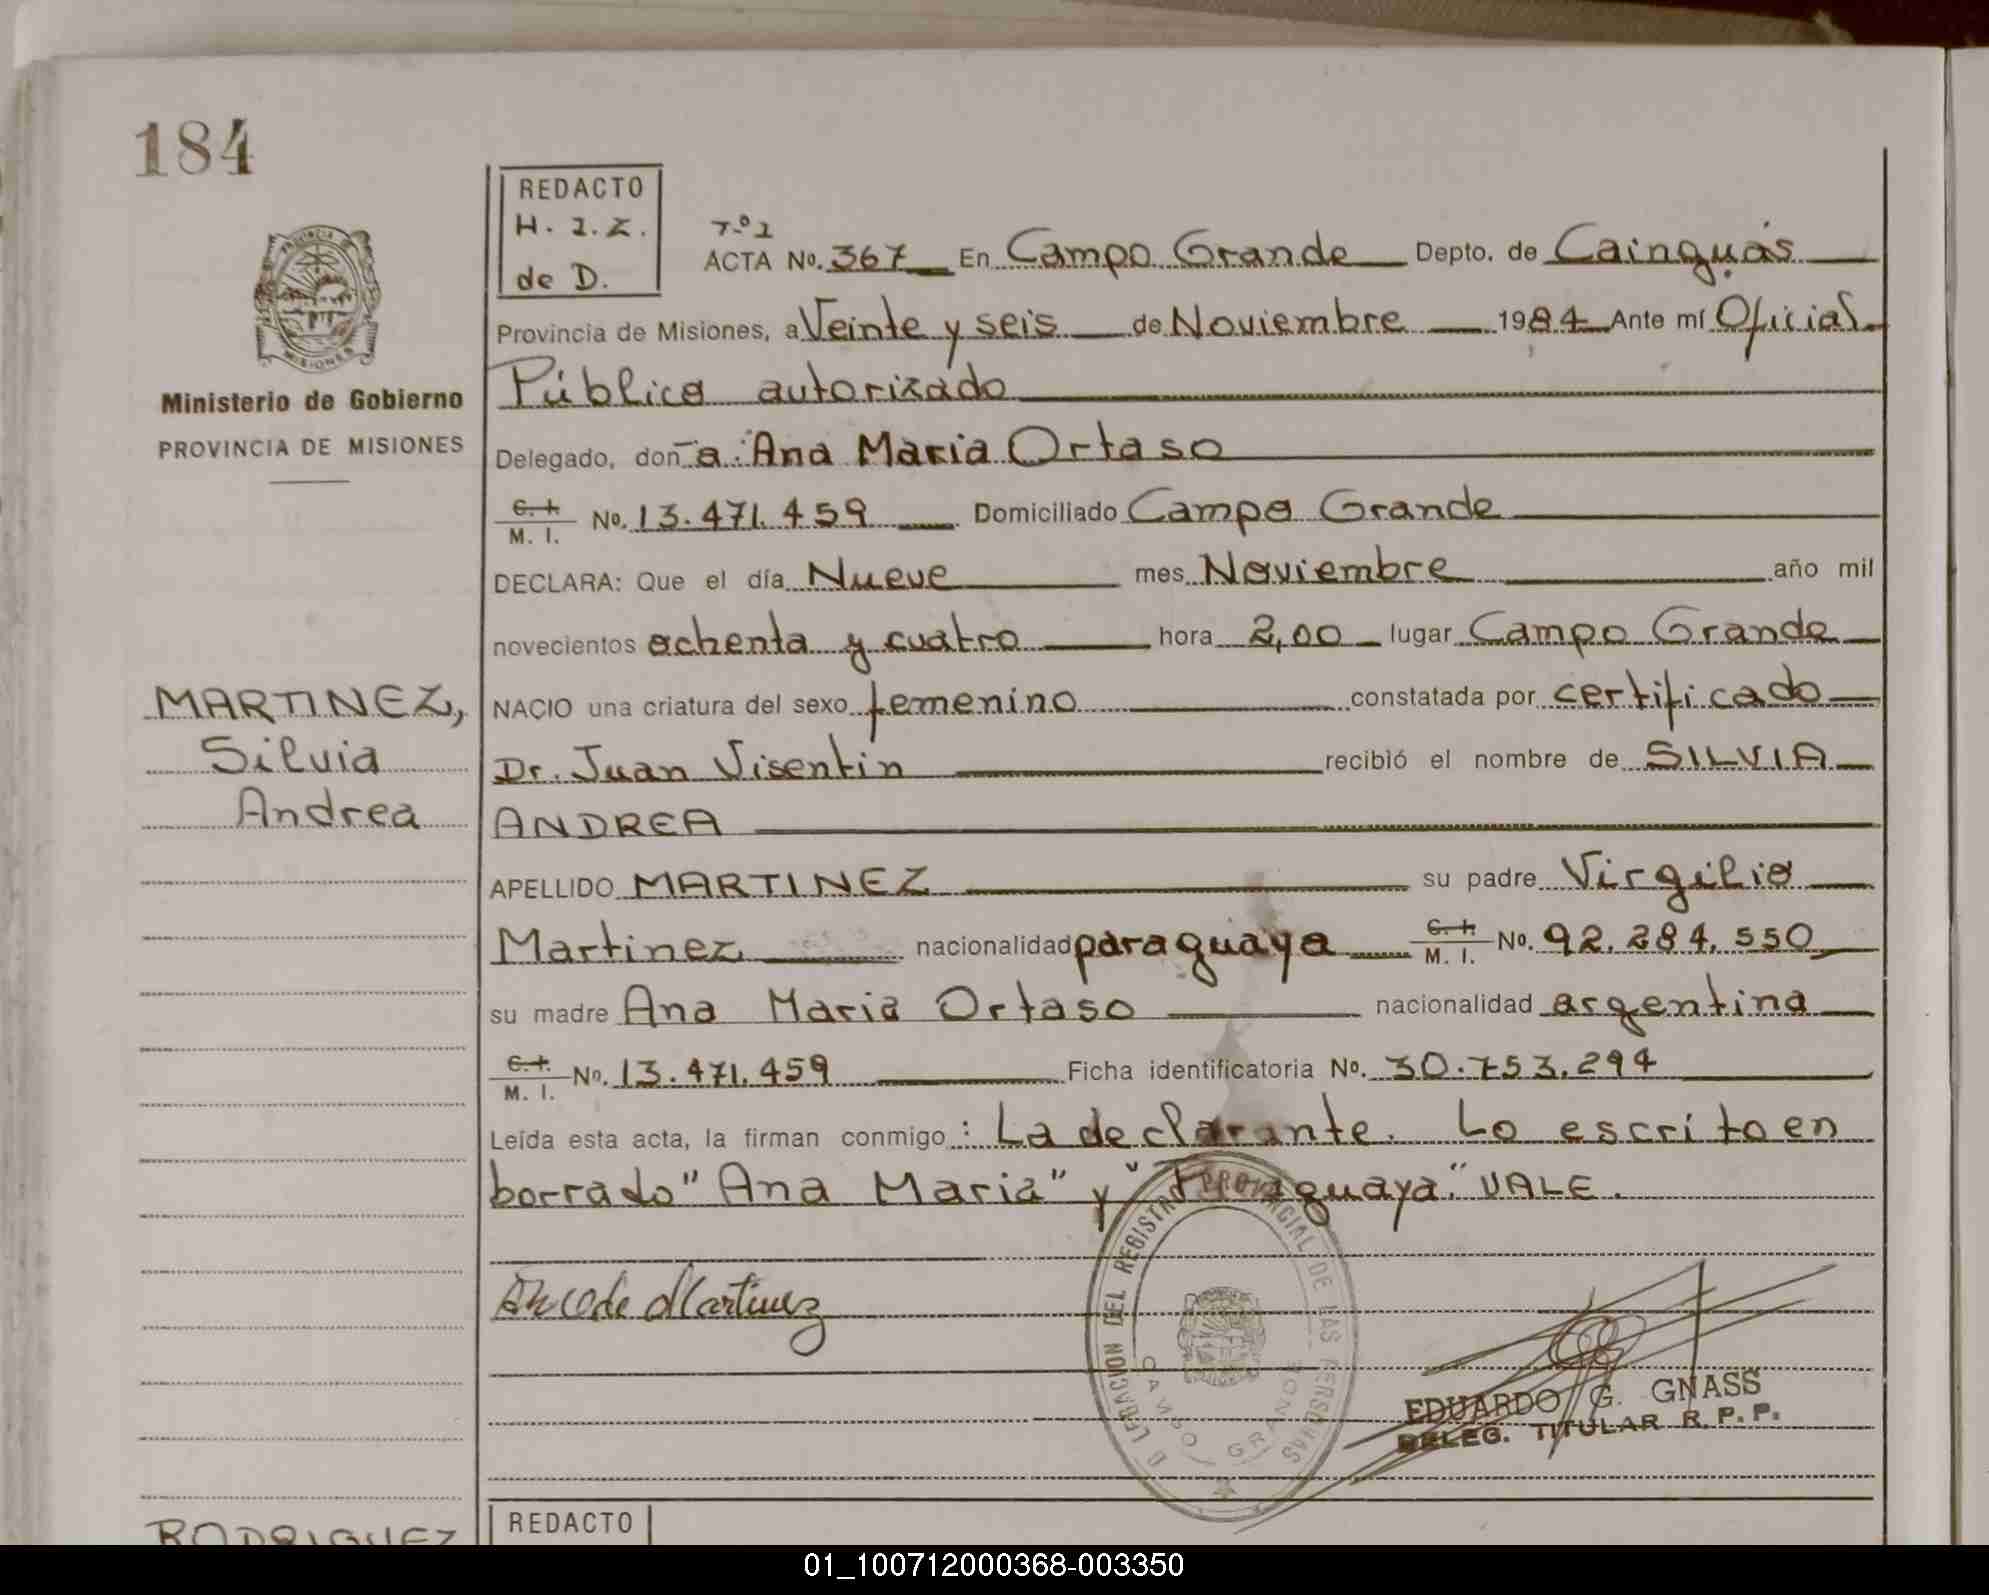 184
REDACTO
H. I. Z.
de D.
Tº 1
ACTA No. 367 En Campo Grande Depto. de Cainguás
Provincia de Misiones, a Veinte y seis de Noviembre 1984 Ante mí Oficial
Público autorizado
Ministerio de Gobierno
PROVINCIA DE MISIONES
Delegado, doña: Ana Maria Ortaso
C. I.
M. I. No. 13.471.459 Domiciliado Campo Grande
DECLARA: Que el día Nueve mes Noviembre año mil
novecientos ochenta y cuatro hora 2,00 lugar Campo Grande
MARTINEZ,
Silvia
Andrea
NACIO una criatura del sexo femenino constatada por certificado
Dr. Juan Visentin recibió el nombre de SILVIA
ANDREA
APELLIDO MARTINEZ su padre Virgilio
Martinez nacionalidad paraguaya C. I. M. I. No. 92.284.550
su madre Ana Maria Ortaso nacionalidad argentina
C. I.
M. I. No. 13.471.459 Ficha identificatoria No. 30.753.294
Leída esta acta, la firman conmigo: La declarante. Lo escrito en
borrado "Ana Maria" y "Paraguaya." VALE.
DELEGACION DEL REGISTRO PROVINCIAL DE LAS PERSONAS
CAMPO GRANDE
de Martinez
EDUARDO G. GNASS
DELEG. TITULAR R. P. P.
RODRIGUEZ
REDACTO
01_100712000368-003350